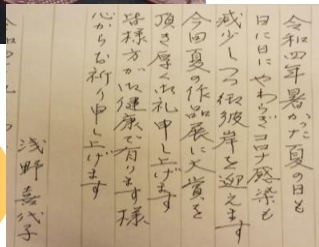 令和四年暑かった夏の日も
日に日にやわらぎコロナ感染も
減少しつつ御彼岸を迎えます
今回夏の作品展に大賞を
頂き厚く御礼申し上げます
皆様方が御健康で有ります様
心からお祈り申し上げます
浅野喜代子